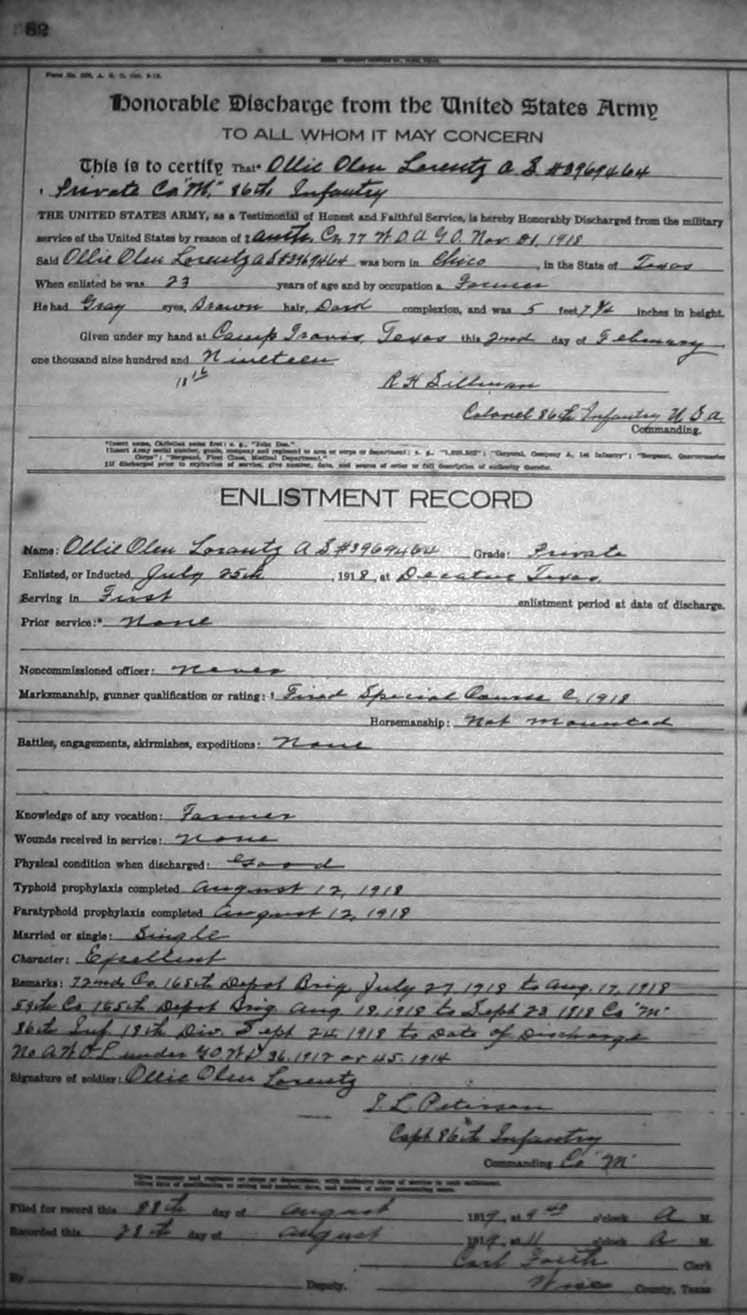 82
Honorable Discharge from the United States Army
TO ALL WHOM IT MAY CONCERN
This is to certify That* Ollie Olen Lorentz A S #3969464
Private Co "M" 86th Infantry
THE UNITED STATES ARMY, as a Testimonial of Honest and Faithful Service, is hereby Honorably Discharged from the military
service of the United States by reason of ‡ Auth. Cr 77 W D A G O. Nov. 21, 1918
Said Ollie Olen Lorentz A S #3969464 was born in Chico, in the State of Texas
When enlisted he was 23 years of age and by occupation a Farmer
He had Gray eyes, Brown hair, Dark complexion, and was 5 feet 7 ¼ inches in height.
Given under my hand at Camp Travis, Texas this 2nd day of February
one thousand nine hundred and Nineteen
R H Sillman
Colonel 86th Infantry U S A
Commanding.
*Insert name, Christian name first: e. g., "John Doe."
†Insert Army serial number, grade, company and regiment or arm or corps or department; e. g., "1,620,302"; "Corporal, Company A, 1st Infantry"; "Sergeant, Quartermaster
Corps"; "Sergeant, First Class, Medical Department."
‡If discharged prior to expiration of service, give number, date, and source of order or full description of authority therefor.
ENLISTMENT RECORD
Name: Ollie Olen Lorentz A S #3969464 Grade: Private
Enlisted, or Inducted, July 25th, 1918, at Decatur Texas
Serving in First enlistment period at date of discharge.
Prior service:* None
Noncommissioned officer: Never
Marksmanship, gunner qualification or rating: † Fired Special Course C, 1918
Horsemanship: Not mounted
Battles, engagements, skirmishes, expeditions: None
Knowledge of any vocation: Farmer
Wounds received in service: None
Physical condition when discharged: Good
Typhoid prophylaxis completed August 12, 1918
Paratyphoid prophylaxis completed August 12, 1918
Married or single: Single
Character: Excellent
Remarks: 72nd Co. 165th Depot Brig July 27 1918 to Aug. 17, 1918
59th Co 165th Depot Brig Aug 18, 1918 to Sept 23 1918 Co "M"
86th Inf 18th Div. Sept 24 1918 to Date of Discharge
No A W O L under G O W D 36, 1917 or 45, 1914
Signature of soldier: Ollie Olen Lorentz
Capt 86th Infantry
Commanding Co "M"
Filed for record this 28th day of August 1919, at 9 o'clock A M.
Recorded this 28th day of August 1919, at 11 o'clock A M.
Carl Faith Clerk
By Deputy. Wise County, Texas